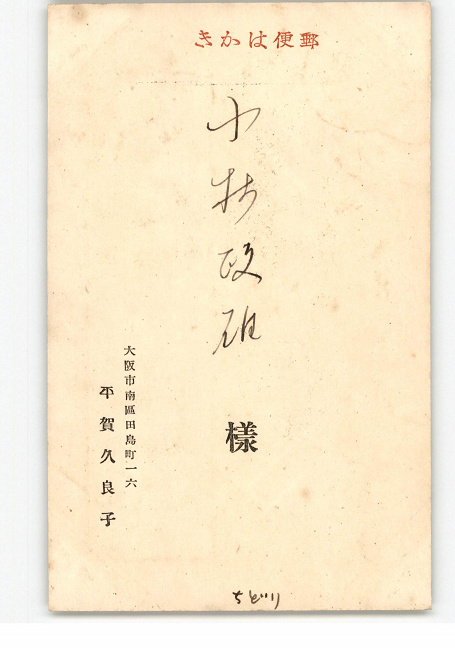 きかは便郵
小林政雄
様
大阪市南區田島町一六
平賀久良子
ちどり